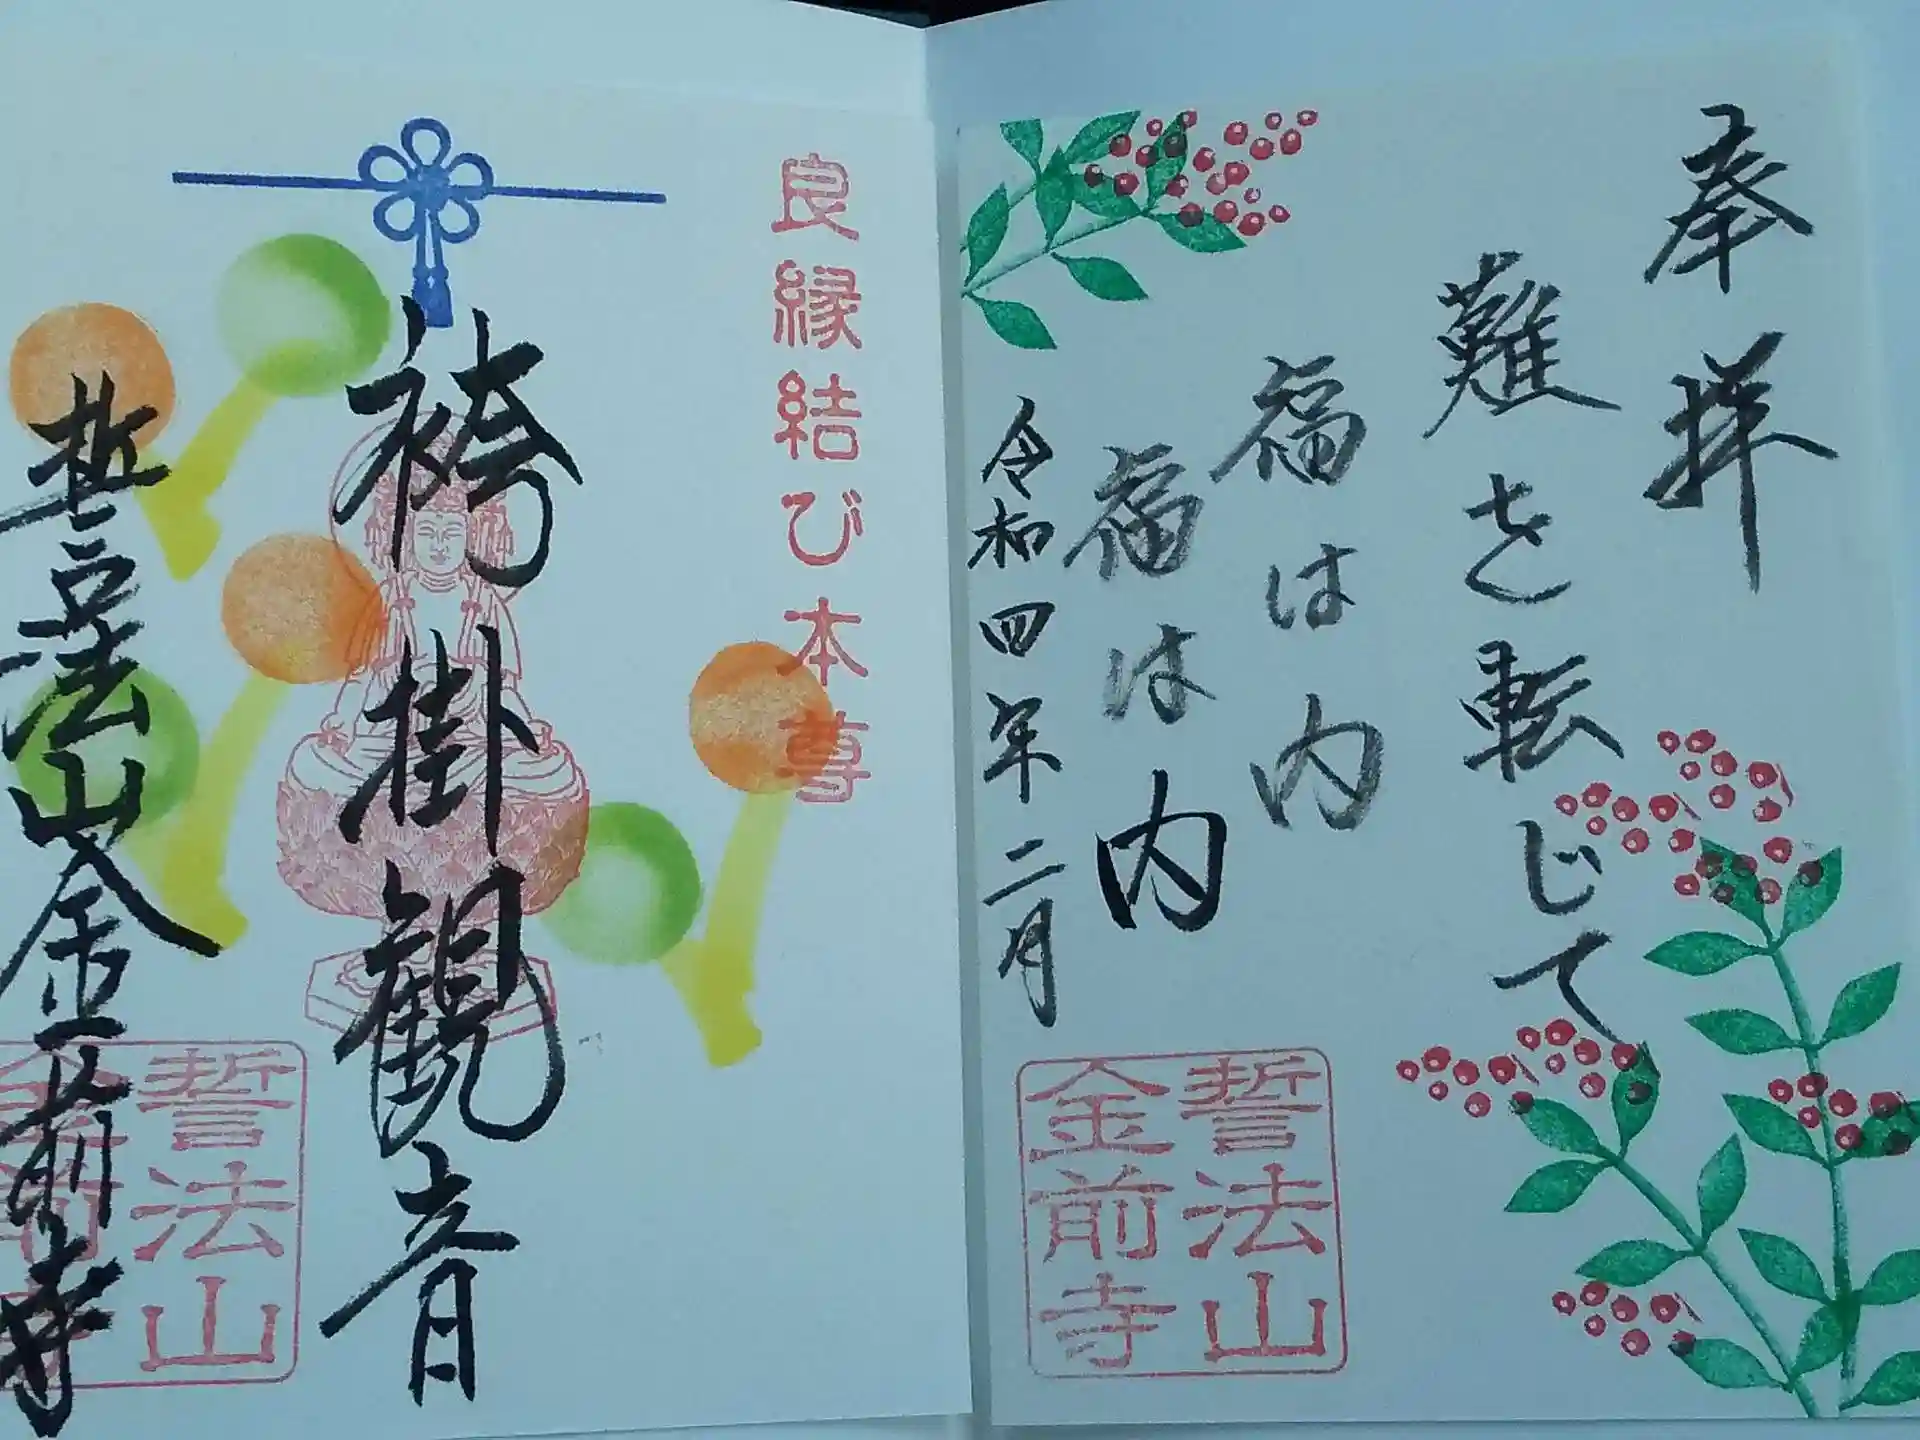 奉拝
難を転じて
福は内
福は内
令和四年二月
誓法山
金前寺
良縁結び本尊
袴掛観音
誓法山金前寺
誓法山
金前寺